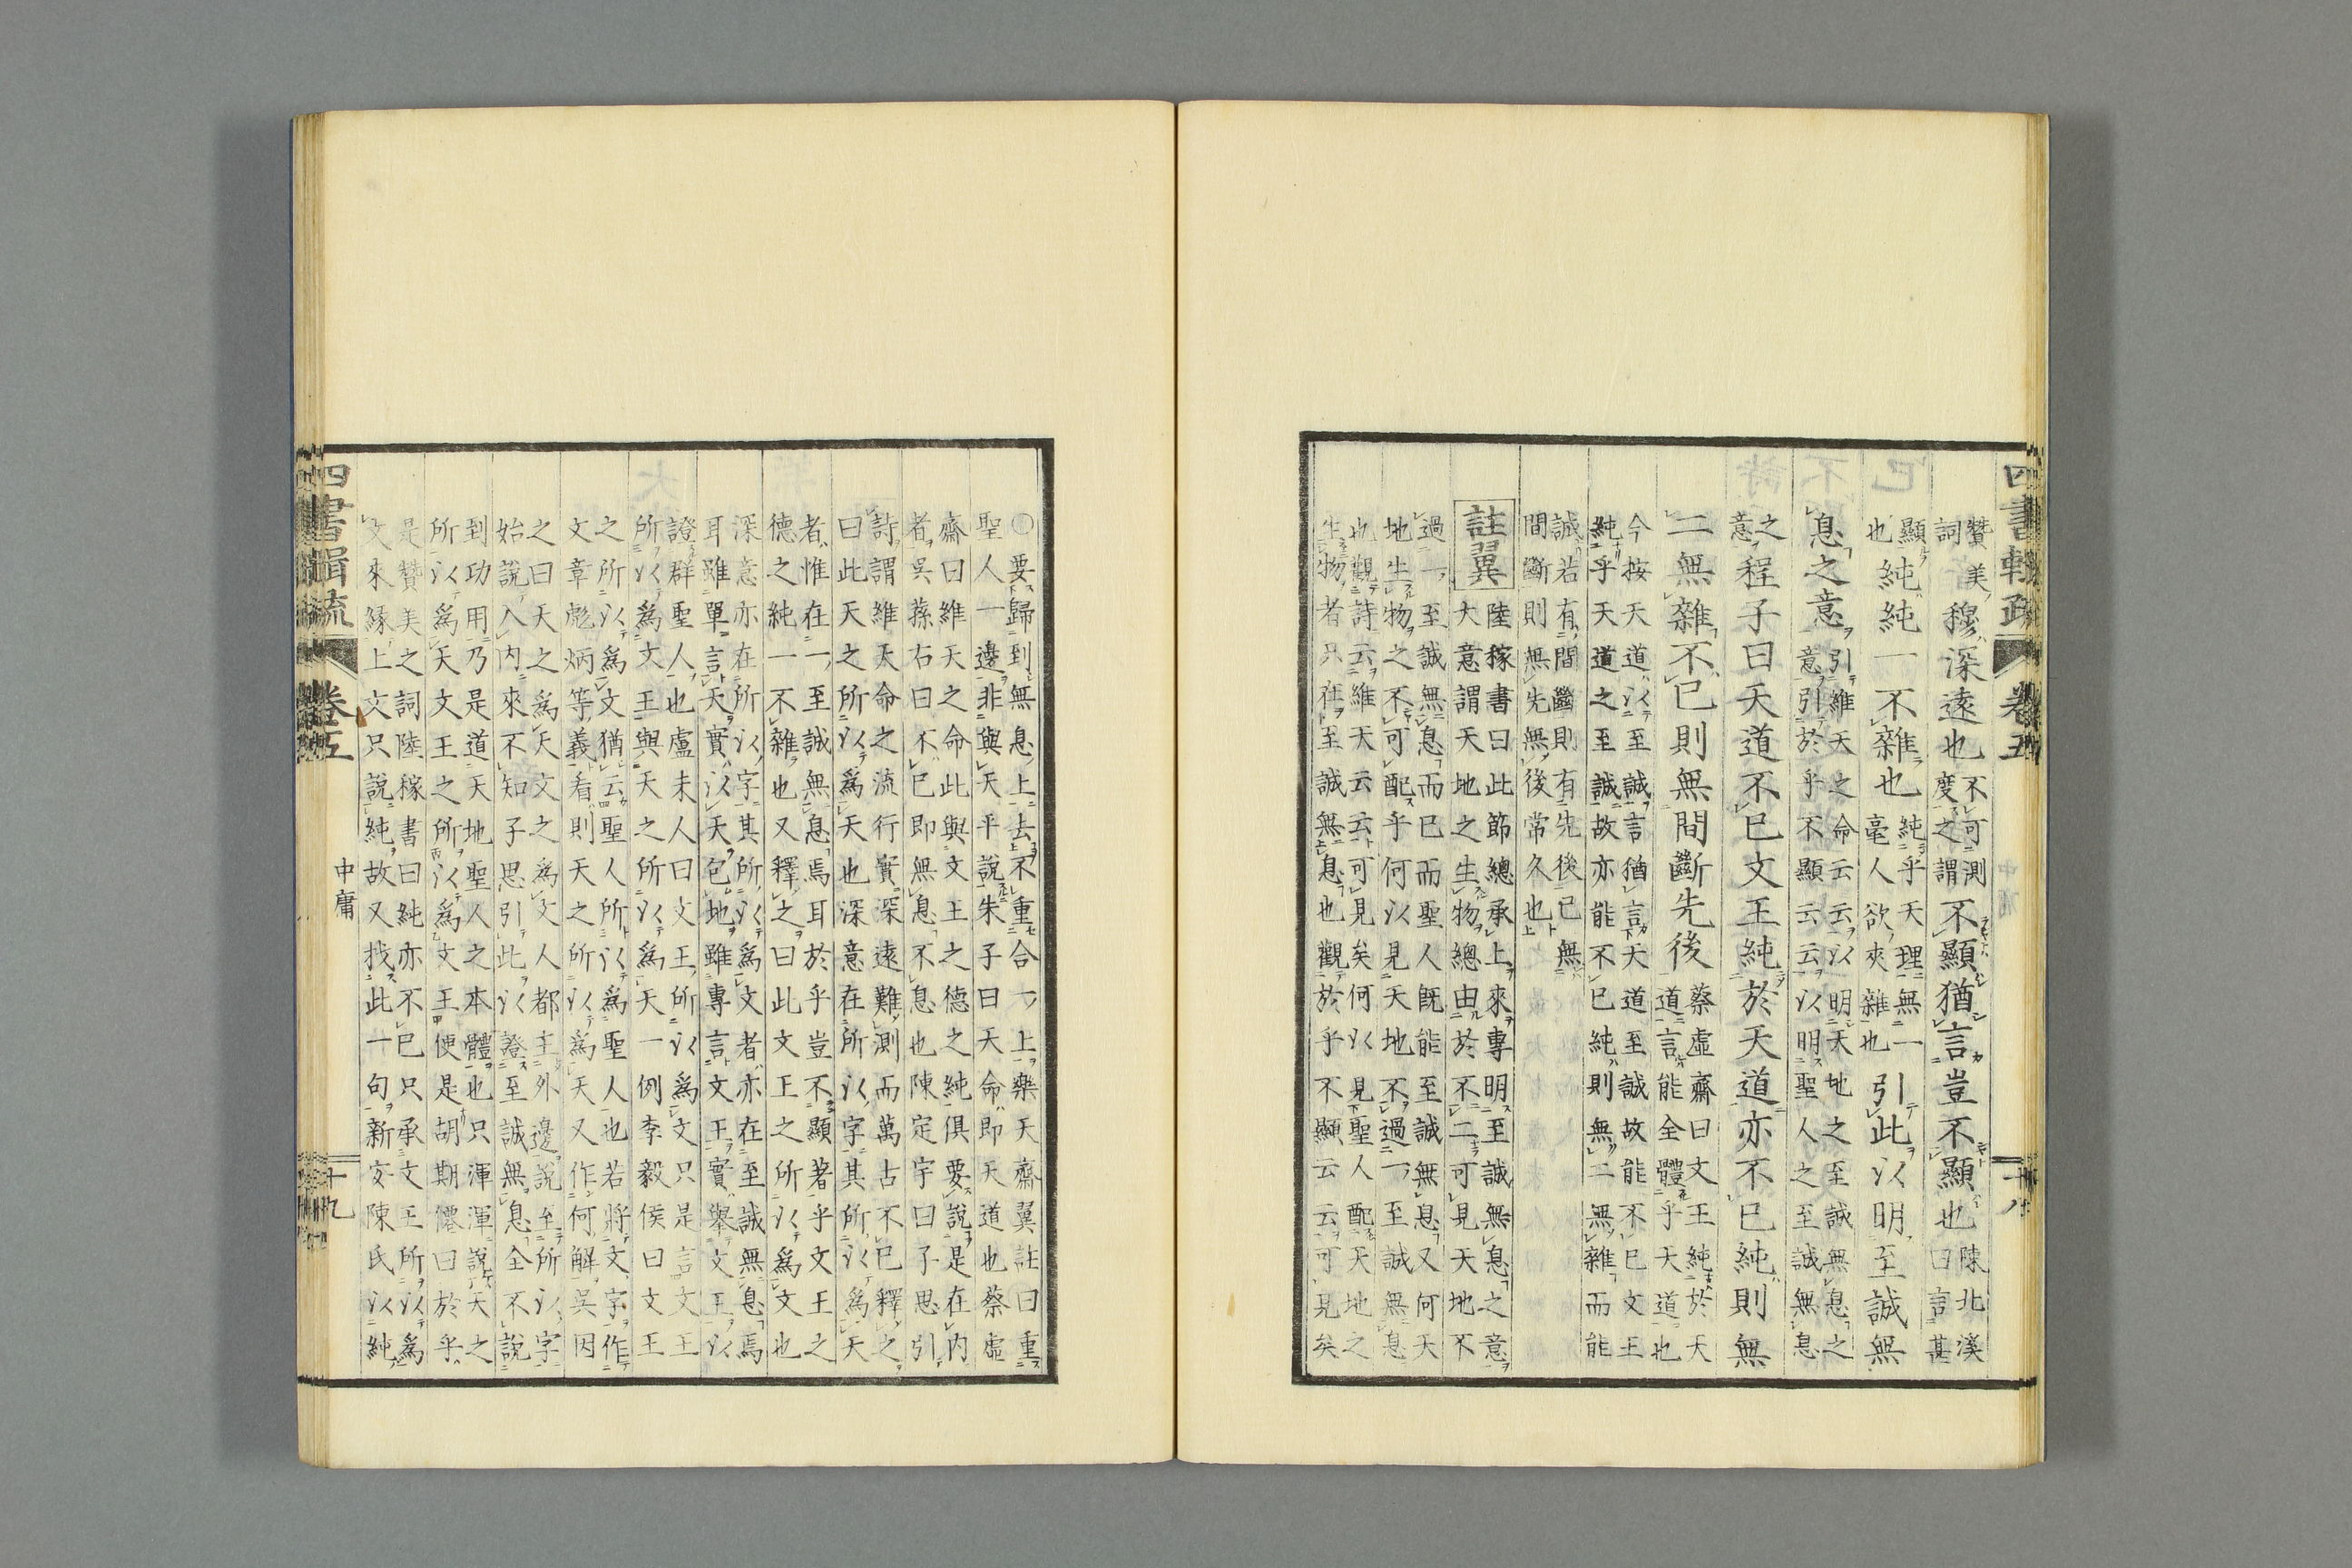 四書輯疏 卷五 十八
贊美
詞
穆深遠也
不可測
度之謂
不顯猶言豈不顯也
陳北溪
曰言甚
顯
也
純純一不雜也
純乎天理無一
毫人欲夾雜也
引此以明至誠無
息之意
引維天之命云云以明天地之至誠無息之
意引於乎不顯云云以明聖人之至誠無息
之
意
程子曰天道不已文王純於天道亦不已純則無
二無雜不已則無間斷先後
蔡虛齋曰文王純於天
道言能全體乎天道也
今按天道以至誠言猶言天道至誠故能不已文王
純乎天道之至誠故亦能不已純則無二無雜而能
誠若有間斷則有先後已無
間斷則無先無後常久也
註翼
陸稼書曰此節總承上來專明至誠無息之意
大意謂天地之生物總由於不二可見天地不
過一至誠無息而已而聖人既能至誠無息又何天
地生物之不可配乎何以見天地不過一至誠無息
也觀詩云維天云云可見矣何以見聖人配天地之
生物者只在至誠無息也觀於乎不顯云云可見矣
○要歸到無息上去不重合一上樂天齋翼註曰重
聖人一邊非與天平說朱子曰天命即天道也蔡虛
齋曰維天之命此與文王之德之純俱要說是在内
者吳蓀右曰不已即無息不息也陳定宇曰子思引
詩謂維天命之流行實深遠難測而萬古不已釋之
曰此天之所以為天也深意在所以字其所以為天
者惟在一至誠無息焉耳於乎豈不顯著乎文王之
德之純一不雜也又釋之曰此文王之所以為文也
深意亦在所以字其所以為文者亦在至誠無息焉
耳雖單言天實以天包地雖專言文王實舉文王以
證群聖人也盧未人曰文王所以為文只是言文王
所以為文王與天之所以為天一例李毅侯曰文王
之所以為文猶云聖人所以為聖人也若將文字作
文章彪炳等義看則天之所以為天又作何解吳因
之曰天之為天文之為文人都在外邊說至所以字
始說入内來不知子思引此以證至誠無息全不說
到功用乃是道天地聖人之本體也只渾渾說天之
所以為天文王之所以為文王便是胡期僊曰於乎
是贊美之詞陸稼書曰純亦不已只承文王所以為
文來緣上文只說純故又找此一句新安陳氏以純
四書輯疏 卷五 中庸 十九